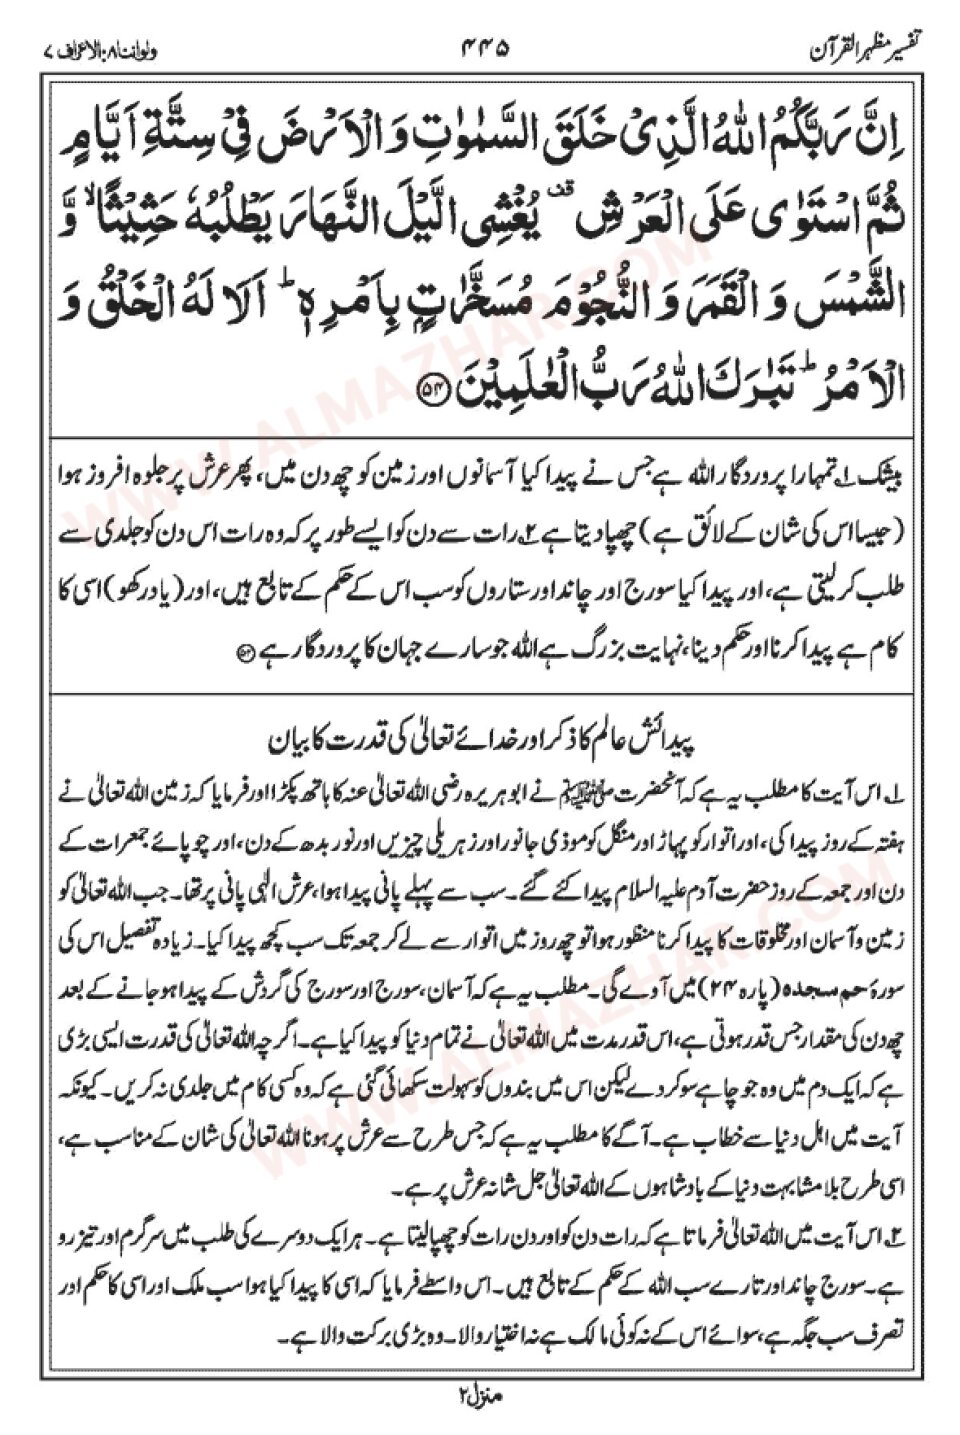 تفسیر مظہر القرآن ۴۴۵ ولو اننا ۸: الاعراف ۷
اِنَّ رَبَّكُمُ اللّٰهُ الَّذِیْ خَلَقَ السَّمٰوٰتِ وَ الْاَرْضَ فِیْ سِتَّةِ اَیَّامٍ
ثُمَّ اسْتَوٰی عَلَی الْعَرْشِ ۫ یُغْشِی الَّیْلَ النَّهَارَ یَطْلُبُهٗ حَثِیْثًا ۙ وَّ
الشَّمْسَ وَ الْقَمَرَ وَ النُّجُوْمَ مُسَخَّرٰتٍۭ بِاَمْرِهٖ ؕ اَلَا لَهُ الْخَلْقُ وَ
الْاَمْرُ ؕ تَبٰرَكَ اللّٰهُ رَبُّ الْعٰلَمِیْنَ ﴿۵۴﴾
بیشک ۱؎ تمہارا پروردگار اللہ ہے جس نے پیدا کیا آسمانوں اور زمین کو چھ دن میں، پھر عرش پر جلوہ افروز ہوا
(جیسا اس کی شان کے لائق ہے) چھپا دیتا ہے ۲؎ رات سے دن کو ایسے طور پر کہ وہ رات اس دن کو جلدی سے
طلب کر لیتی ہے، اور پیدا کیا سورج اور چاند اور ستاروں کو سب اس کے حکم کے تابع ہیں، اور (یاد رکھو) اسی کا
کام ہے پیدا کرنا اور حکم دینا، نہایت بزرگ ہے اللہ جو سارے جہان کا پروردگار ہے ﴿۵۴﴾
پیدائش عالم کا ذکر اور خدائے تعالیٰ کی قدرت کا بیان
۱؎ اس آیت کا مطلب یہ ہے کہ آنحضرت ﷺ نے ابو ہریرہ رضی اللہ تعالیٰ عنہ کا ہاتھ پکڑا اور فرمایا کہ زمین اللہ تعالیٰ نے
ہفتہ کے روز پیدا کی، اور اتوار کو پہاڑ اور منگل کو موذی جانور اور زہریلی چیزیں اور نور بدھ کے دن، اور چوپائے جمعرات کے
دن اور جمعہ کے روز حضرت آدم علیہ السلام پیدا کئے گئے۔ سب سے پہلے پانی پیدا ہوا، عرش الٰہی پانی پر تھا۔ جب اللہ تعالیٰ کو
زمین و آسمان اور مخلوقات کا پیدا کرنا منظور ہوا تو چھ روز میں اتوار سے لے کر جمعہ تک سب کچھ پیدا کیا۔ زیادہ تفصیل اس کی
سورۂ حم سجدہ (پارہ ۲۴) میں آوے گی۔ مطلب یہ ہے کہ آسمان، سورج اور سورج کی گردش کے پیدا ہو جانے کے بعد
چھ دن کی مقدار جس قدر ہوتی ہے، اس قدر مدت میں اللہ تعالیٰ نے تمام دنیا کو پیدا کیا ہے۔ اگرچہ اللہ تعالیٰ کی قدرت ایسی بڑی
ہے کہ ایک دم میں وہ جو چاہے سو کر دے لیکن اس میں بندوں کو سہولت سکھائی گئی ہے کہ وہ کسی کام میں جلدی نہ کریں۔ کیونکہ
آیت میں اہل دنیا سے خطاب ہے۔ آگے کا مطلب یہ ہے کہ جس طرح سے عرش پر ہونا اللہ تعالیٰ کی شان کے مناسب ہے،
اسی طرح بلا مشابہت دنیا کے بادشاہوں کے اللہ تعالیٰ جل شانہ عرش پر ہے۔
۲؎ اس آیت میں اللہ تعالیٰ فرماتا ہے کہ رات دن کو اور دن رات کو چھپا لیتا ہے۔ ہر ایک دوسرے کی طلب میں سرگرم اور تیز رو
ہے۔ سورج چاند اور تارے سب اللہ کے حکم کے تابع ہیں۔ اس واسطے فرمایا کہ اسی کا پیدا کیا ہوا سب ملک اور اسی کا حکم اور
تصرف سب جگہ ہے، سوائے اس کے نہ کوئی مالک ہے نہ اختیار والا۔ وہ بڑی برکت والا ہے۔
منزل ۲
WWW.ALMAZHAR.COM
WWW.ALMAZHAR.COM